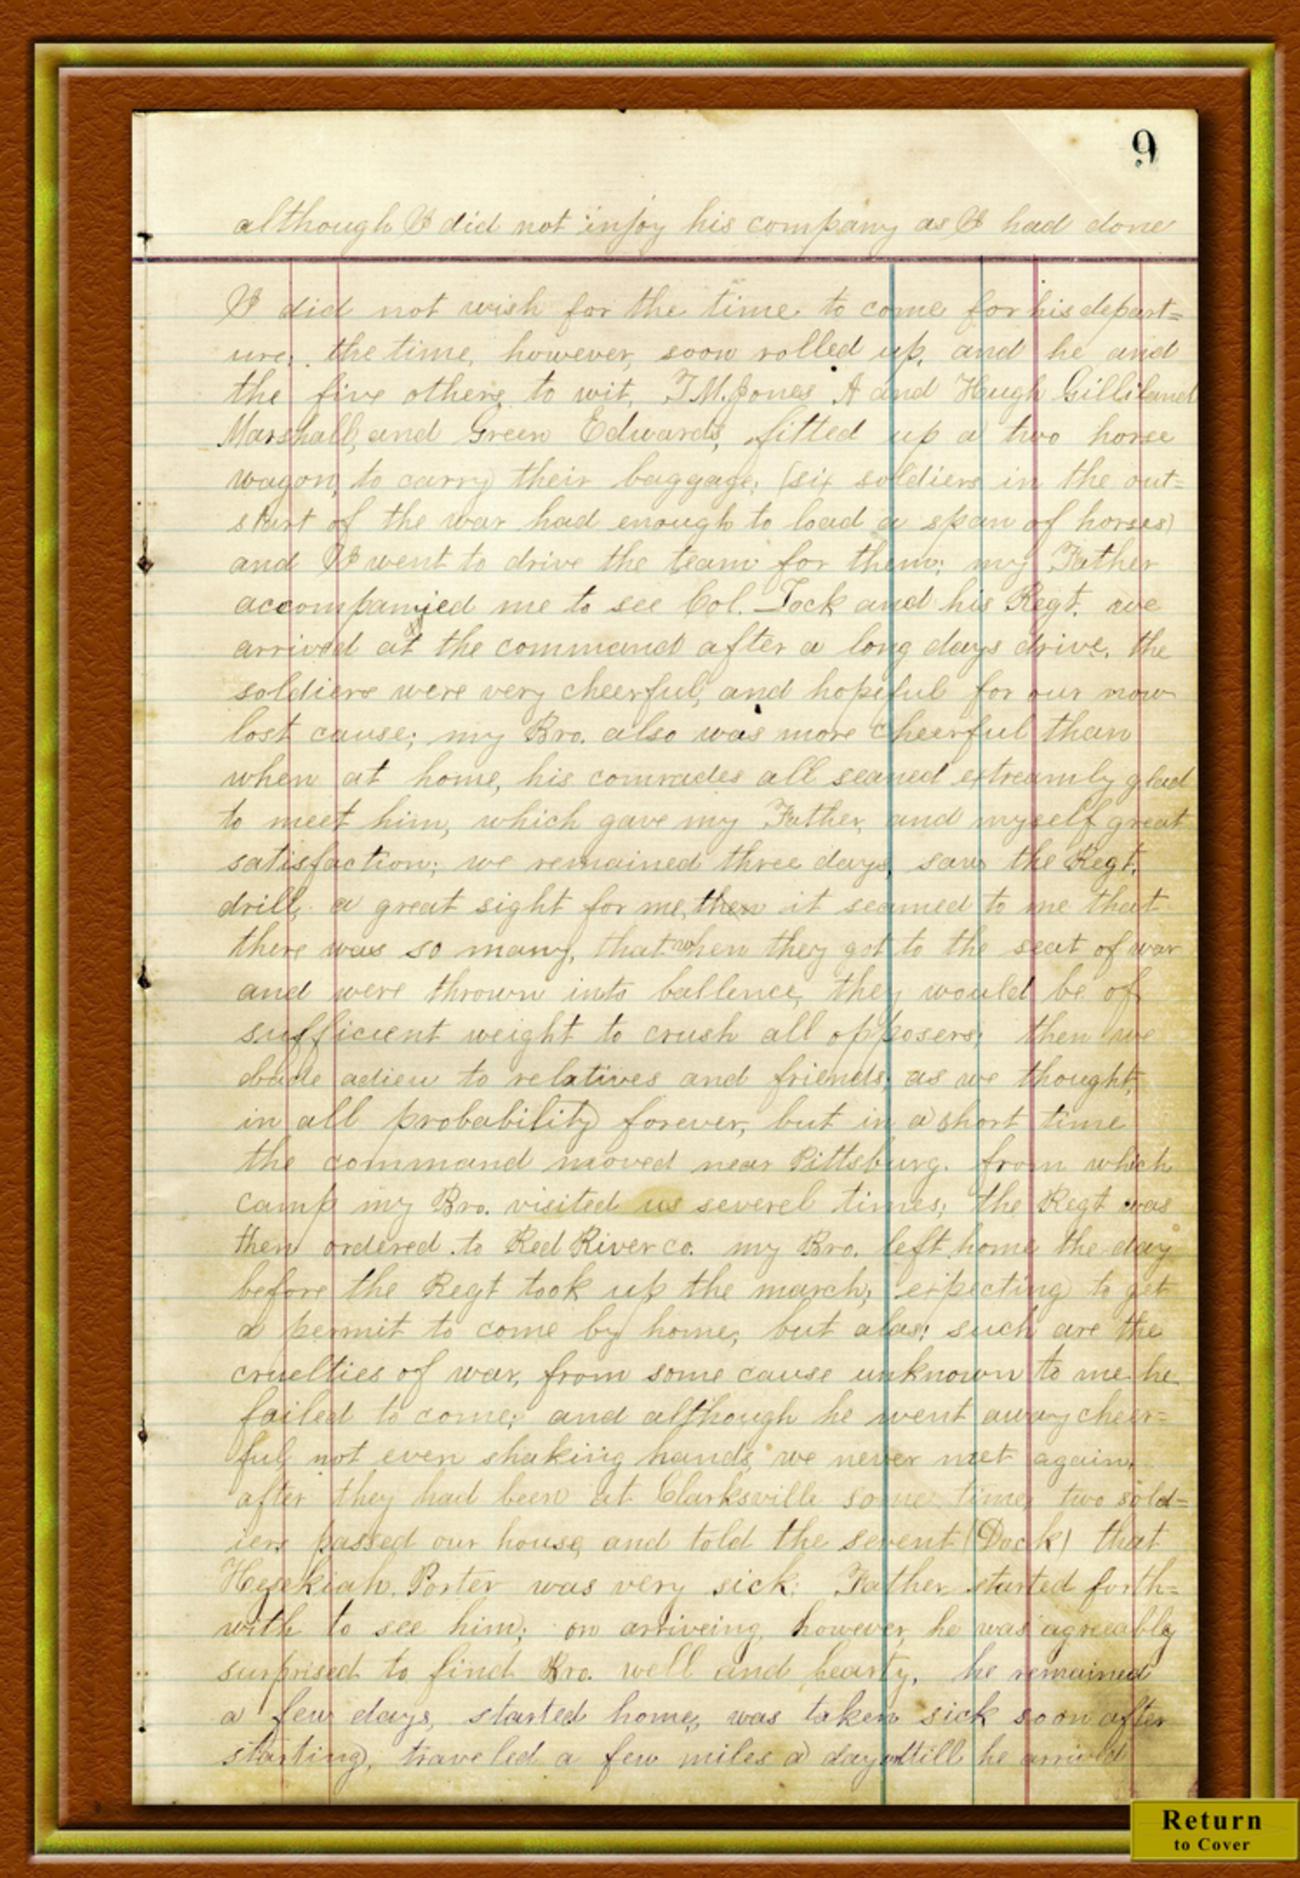 9
although I did not injoy his company as I had done
I did not wish for the time to come for his depart=
ure; the time, however, soon rolled up, and he and
the five others to wit, T.M. Jones A and Hugh Gilliland
Marshall, and Green Edwards, fitted up a two horse
wagon, to carry their baggage, (six soldiers in the out=
start of the war had enough to load a span of horses)
and I went to drive the team for them; my Father
accompanied me to see Col. Lock and his Regt. we
arrived at the command after a long days drive, the
soldiers were very cheerful, and hopeful for our now
lost cause; my Bro. also was more cheerful than
when at home, his comrades all seamed extreamly glad
to meet him, which gave my Father, and myself great
satisfaction; we remained three days, saw the Regt.
drill, a great sight for me, then it seamed to me that
there was so many, that when they got to the seat of war
and were thrown into ballence, they would be of
sufficient weight to crush all opposers; then we
bade adieu to relatives and friends, as we thought,
in all probability forever, but in a short time
the command moved near Pittsburg. from which
camp my Bro. visited us severel times; the Regt was
then ordered to Red River co. my Bro. left home the day
before the Regt took up the march, expecting to get
a permit to come by home, but alas; such are the
cruelties of war, from some cause unknown to me he
failed to come; and although he went away cheer=
ful, not even shaking hands, we never met again,
after they had been at Clarksville some time, two sold=
iers passed our house, and told the servent (Dock) that
Hezekiah Porter was very sick: Father started forth=
with to see him; on arriveing, however, he was agreeably
surprised to find Bro. well and hearty, he remained
a few days, started home, was taken sick soon after
starting, traveled a few miles a day till he arrived
Return
to Cover